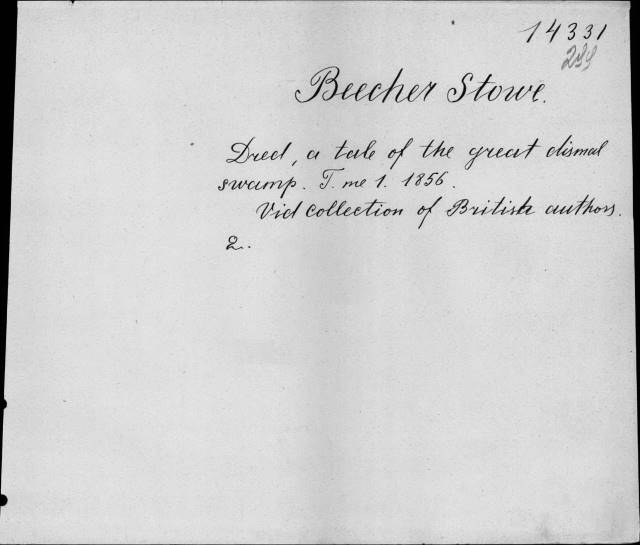 14331
299
Beecher Stowe.
Dred, a tale of the great dismal
swamp. T. me 1. 1856.
Vid collection of British authors.
2.